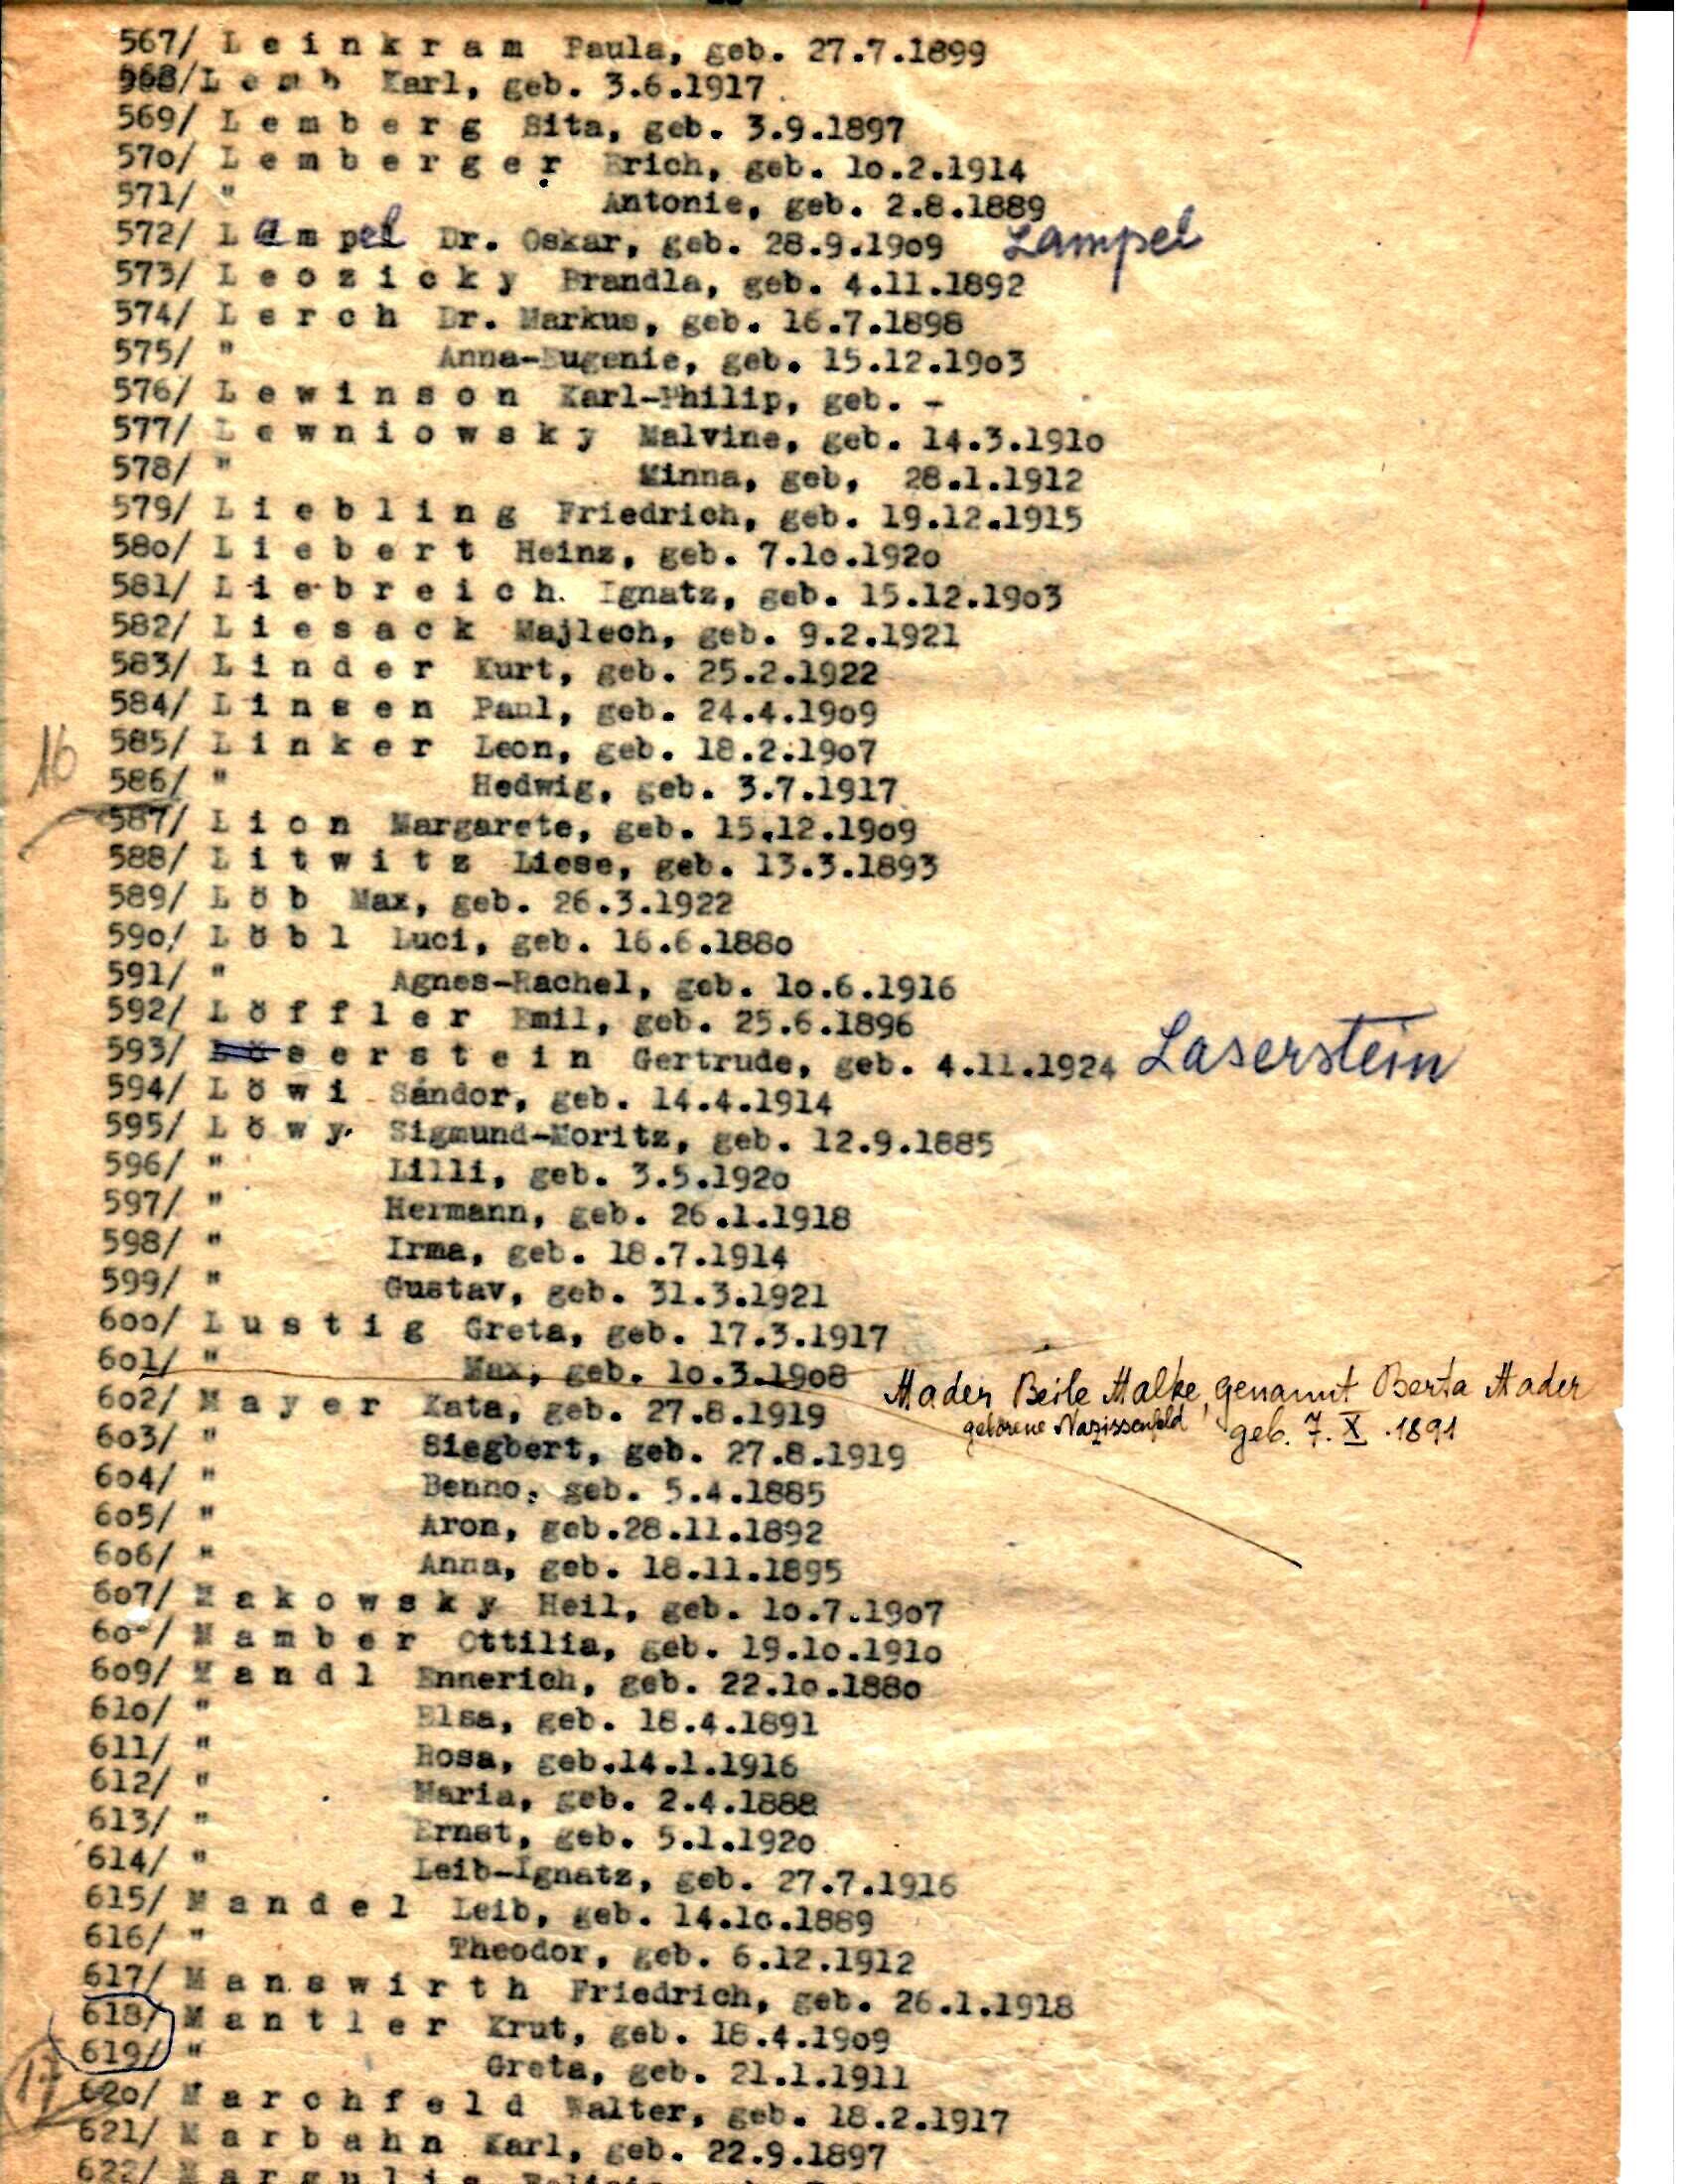 567/ Leinkram Paula, geb. 27.7.1899
568/ Lemb Karl, geb. 3.6.1917
569/ Lemberg Sita, geb. 3.9.1897
570/ Lemberger Erich, geb. 10.2.1914
571/ " Antonie, geb. 2.8.1889
572/ Lampel Dr. Oskar, geb. 28.9.1909 Lampel
573/ Leozicky Brandla, geb. 4.11.1892
574/ Lerch Dr. Markus, geb. 16.7.1898
575/ " Anna-Eugenie, geb. 15.12.1903
576/ Lewinson Karl-Philip, geb. -
577/ Lewniowsky Malvine, geb. 14.3.1910
578/ " Minna, geb, 28.1.1912
579/ Liebling Friedrich, geb. 19.12.1915
580/ Liebert Heinz, geb. 7.10.1920
581/ Liebreich Ignatz, geb. 15.12.1903
582/ Liesack Majlech, geb. 9.2.1921
583/ Linder Kurt, geb. 25.2.1922
584/ Linsen Paul, geb. 24.4.1909
16
585/ Linker Leon, geb. 18.2.1907
586/ " Hedwig, geb. 3.7.1917
587/ Lion Margarete, geb. 15.12.1909
588/ Litwitz Liese, geb. 13.3.1893
589/ Löb Max, geb. 26.3.1922
590/ Löbl Luci, geb. 16.6.1880
591/ " Agnes-Rachel, geb. 10.6.1916
592/ Löffler Emil, geb. 25.6.1896
593/ serstein Gertrude, geb. 4.11.1924 Laserstein
594/ Löwi Sándor, geb. 14.4.1914
595/ Löwy Sigmund-Moritz, geb. 12.9.1885
596/ " Lilli, geb. 3.5.1920
597/ " Hermann, geb. 26.1.1918
598/ " Irma, geb. 18.7.1914
599/ " Gustav, geb. 31.3.1921
600/ Lustig Greta, geb. 17.3.1917
601/ " Max, geb. 10.3.1908
Mader Beile Malke, genannt Berta Mader
602/ Mayer Kata, geb. 27.8.1919
geborene Nazissenfeld geb. 7.X.1891
603/ " Siegbert, geb. 27.8.1919
604/ " Benno, geb. 5.4.1885
605/ " Aron, geb.28.11.1892
606/ " Anna, geb. 18.11.1895
607/ Makowsky Heil, geb. 10.7.1907
60 / Mamber Ottilia, geb. 19.10.1910
609/ Mandl Ennerich, geb. 22.10.1880
610/ " Elsa, geb. 18.4.1891
611/ " Rosa, geb.14.1.1916
612/ " Maria, geb. 2.4.1888
613/ " Ernst, geb. 5.1.1920
614/ " Leib-Ignatz, geb. 27.7.1916
615/ Mandel Leib, geb. 14.10.1889
616/ " Theodor, geb. 6.12.1912
617/ Manswirth Friedrich, geb. 26.1.1918
618/ Mantler Krut, geb. 18.4.1909
619/ " Greta, geb. 21.1.1911
17
620/ Marchfeld Walter, geb. 18.2.1917
621/ Marbahn Karl, geb. 22.9.1897
622/ Margulis